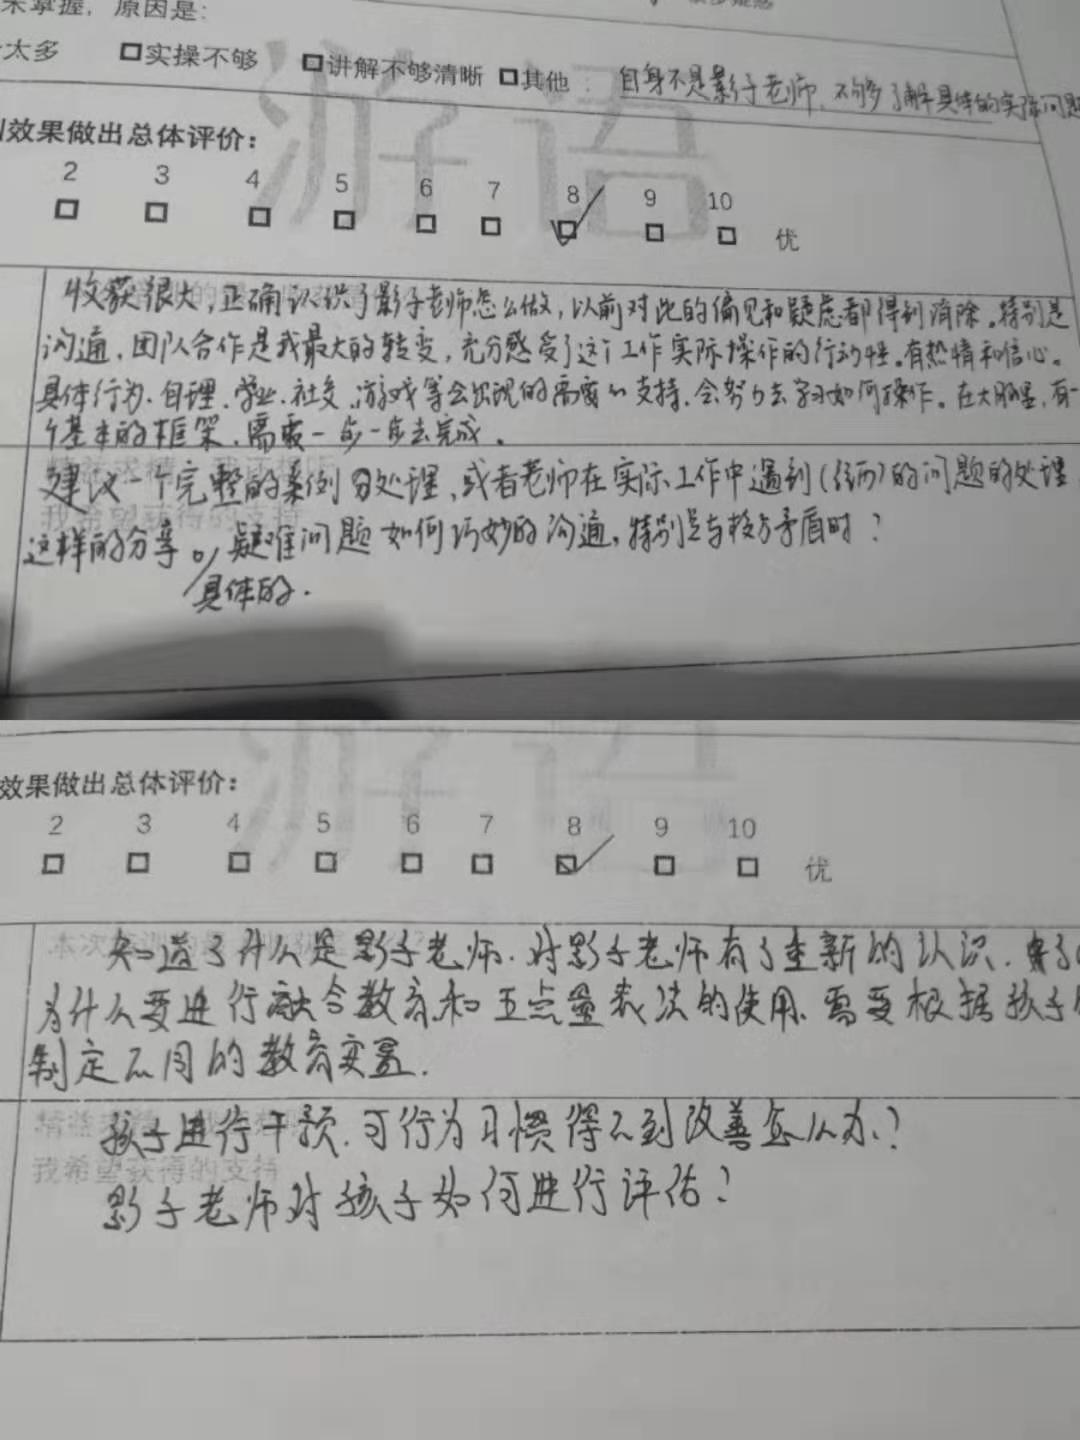 未掌握，原因是：
太多 □实操不够 □讲解不够清晰 □其他：自身不是影子老师，不够了解具体的实际问题
效果做出总体评价：
2 3 4 5 6 7 8 9 10
□ □ □ □ □ □ □ □ □ 优
游语
收获很大，正确认识了影子老师怎么做，以前对此的偏见和疑虑都得到消除。特别是
沟通，团队合作是我最大的转变，充分感受了这个工作实际操作的行动性。有热情和信心。
具体行为、自理、学业、社交、游戏等会出现的需要的支持，会努力去学习如何操作。在大脑里，有一
个基本的框架，需要一步一步去完成。
建议一个完整的案例分处理，或者老师在实际工作中遇到(经历)的问题的处理
我希望获得的支持
这样的分享。疑难问题如何巧妙的沟通，特别是与校方矛盾时？
具体的.
游语
效果做出总体评价：
2 3 4 5 6 7 8 9 10
□ □ □ □ □ □ □ □ □ 优
知道了什么是影子老师，对影子老师有了重新的认识，
为什么要进行融合教育和五点量表法的使用，需要根据孩子
制定不同的教育
孩子进行干预，可行为习惯得不到改善怎么办？
我希望获得的支持
影子老师对孩子如何进行评估？